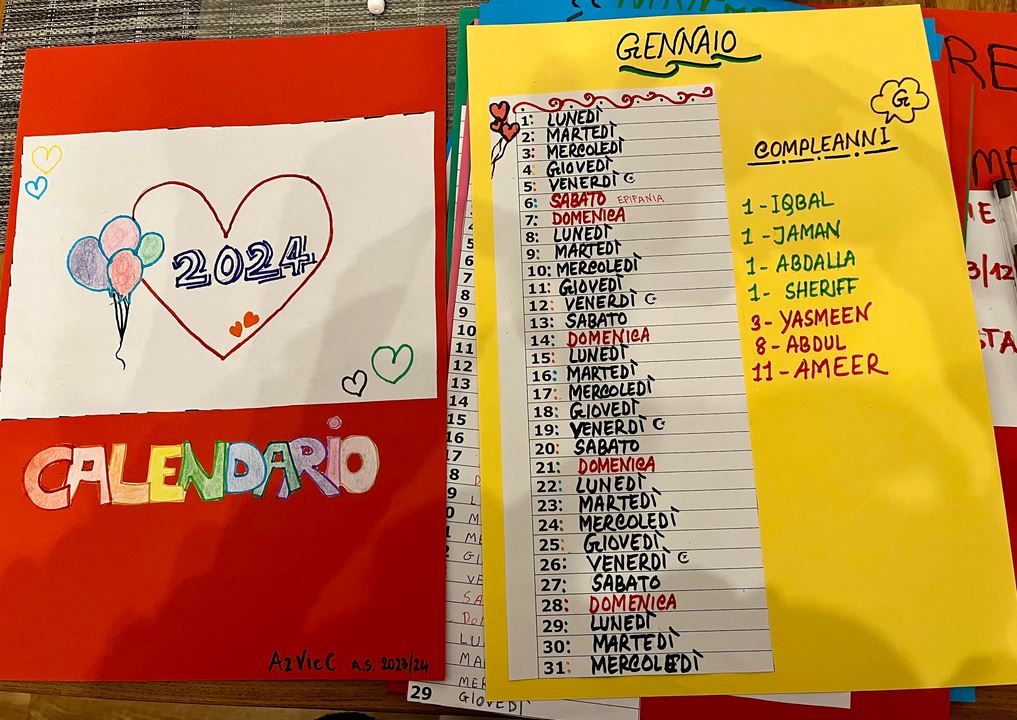 2024
CALENDARIO
A2VicC A.S. 2023/24
GENNAIO
G
1: LUNEDÌ
2: MARTEDÌ
3: MERCOLEDÌ
4: GIOVEDÌ
5: VENERDÌ
6: SABATO EPIFANIA
7: DOMENICA
8: LUNEDÌ
9: MARTEDÌ
10: MERCOLEDÌ
11: GIOVEDÌ
12: VENERDÌ
13: SABATO
14: DOMENICA
15: LUNEDÌ
16: MARTEDÌ
17: MERCOLEDÌ
18: GIOVEDÌ
19: VENERDÌ
20: SABATO
21: DOMENICA
22: LUNEDÌ
23: MARTEDÌ
24: MERCOLEDÌ
25: GIOVEDÌ
26: VENERDÌ
27: SABATO
28: DOMENICA
29: LUNEDÌ
30: MARTEDÌ
31: MERCOLEDÌ
COMPLEANNI
1 - IQBAL
1 - JAMAN
1 - ABDALLA
1 - SHERIFF
3 - YASMEEN
8 - ABDUL
11 - AMEER
5
6
7
8
9
10
11
12
13
14
15
16
17
29 GIOVEDÌ